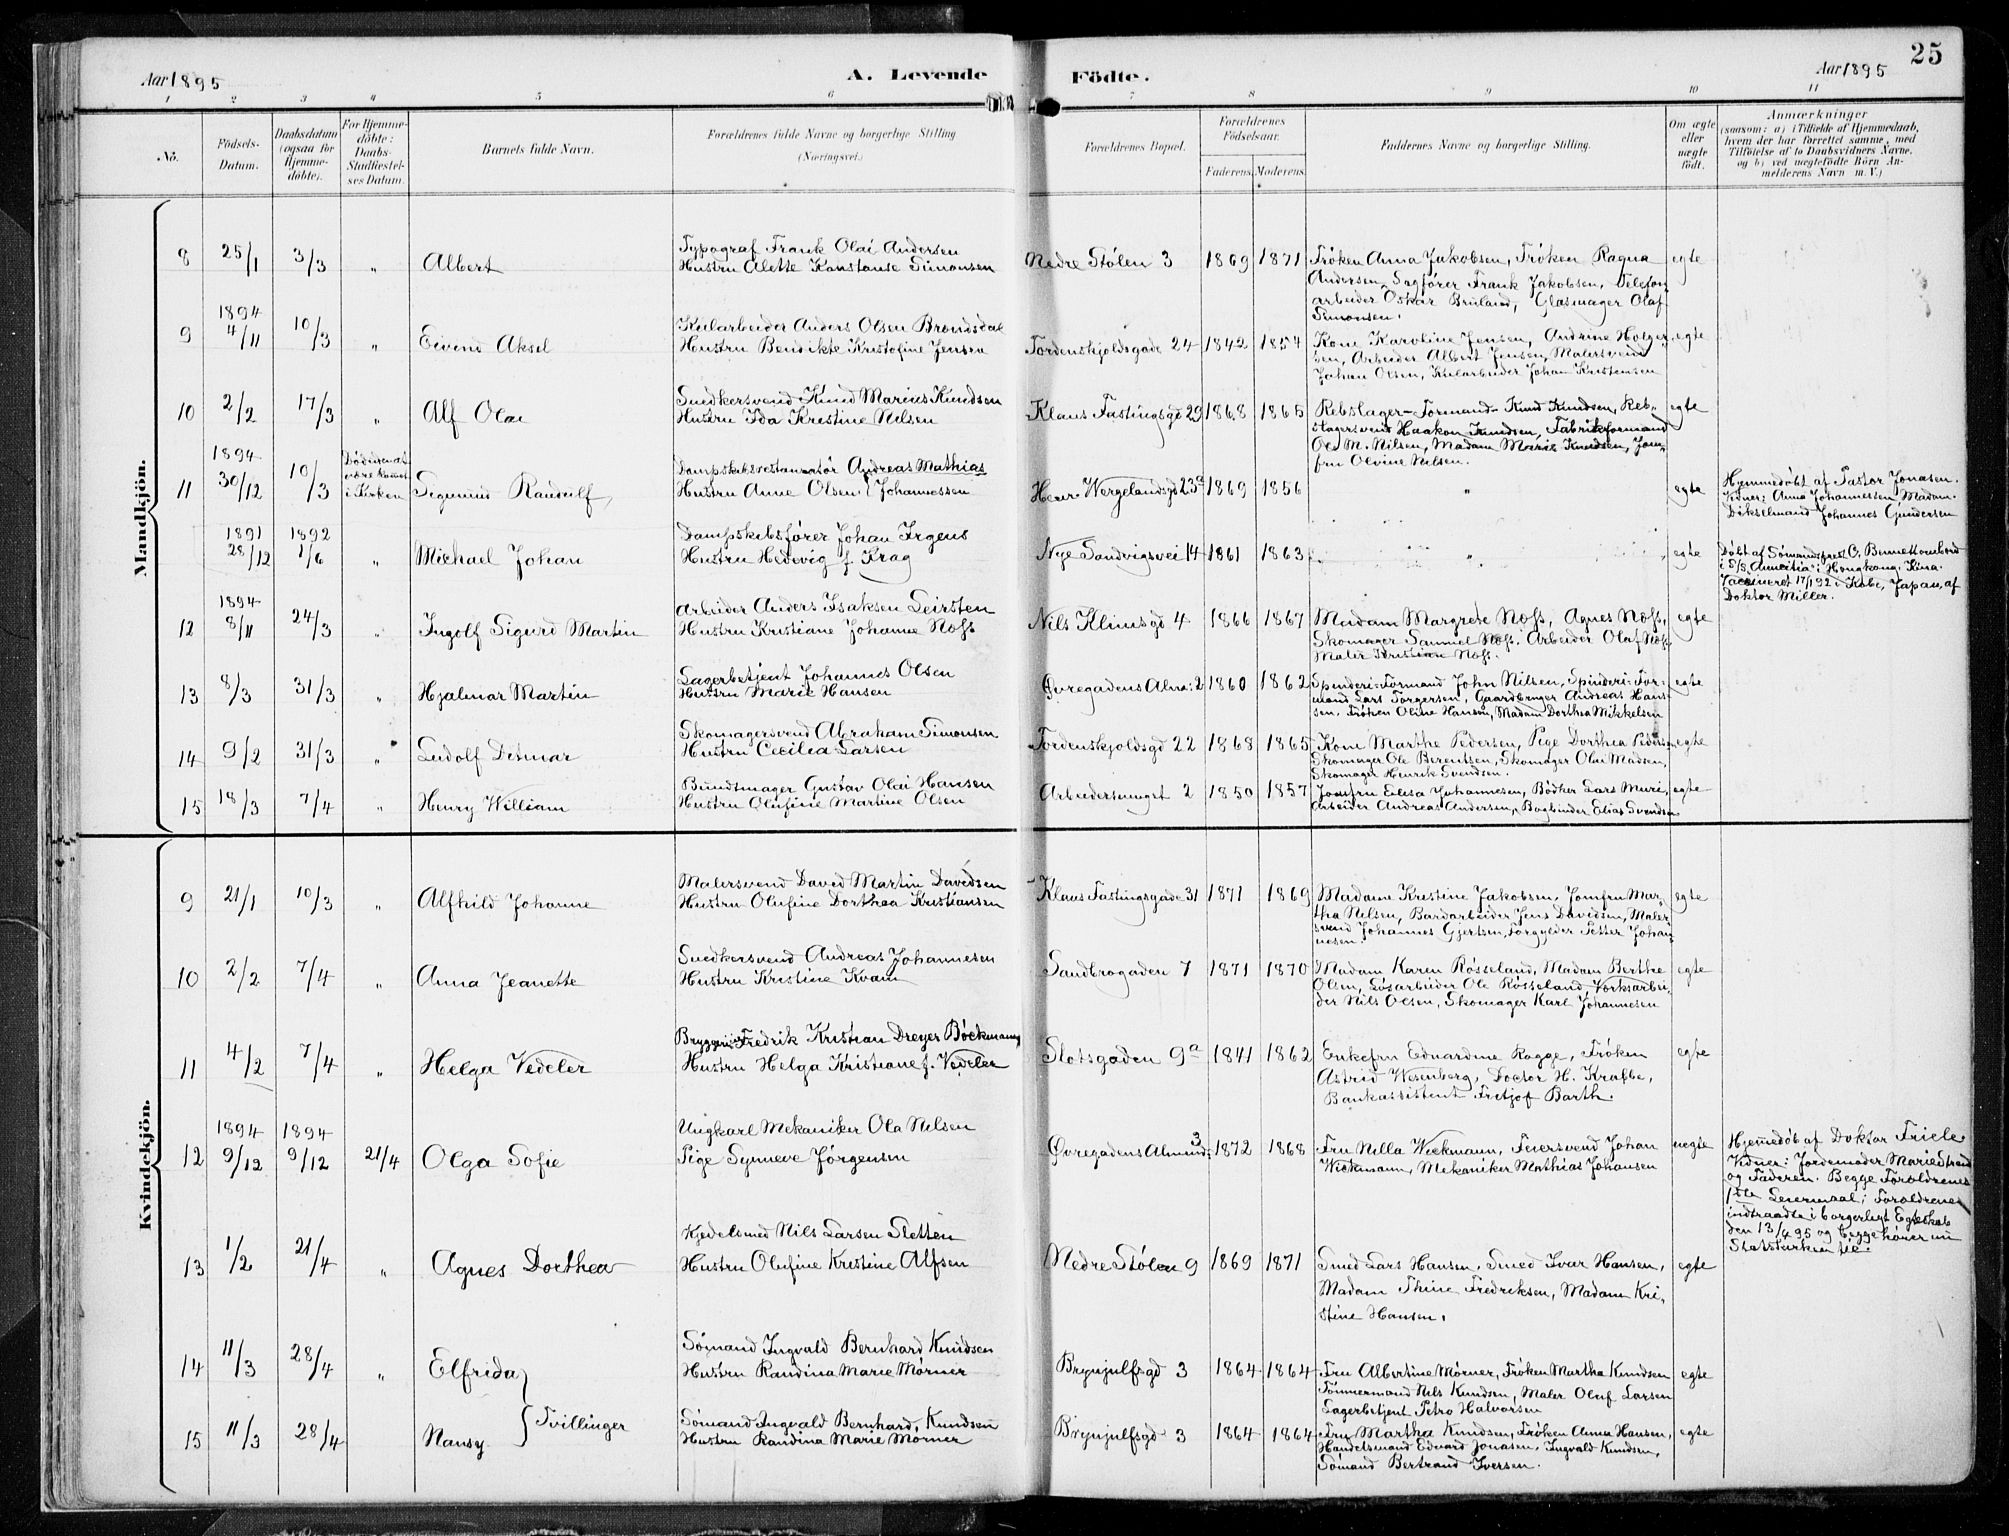 Aar 1895
A. Levende Födte.
Aar 1895
25
1 2 3 4 5 6 7 8 9 10 11
No.
Födsels-Datum.
Daabsdatum (ogsaa for Hjemme-döbte).
For Hjemme-döbte: Daabs-Stadfæstelses Datum.
Barnets fulde Navn.
Forældrenes fulde Navne og borgerlige Stilling
(Næringsvei.)
Forældrenes Bopæl.
Forældrenes Födselsaar.
Faderens. Moderens.
Faddernes Navne og borgerlige Stilling.
Om ægte eller uægte födt.
Anmærkninger
(saasom: a) i Tilfælde af Hjemmedaab,
hvem der har forrettet samme, med
Tilföielse af to Daabsvidners Navne,
og b) ved uægtefödte Börn An-
melderens Navn m. V.)
Mandkjön.
8 25/1 3/3 " Albert
Typograf Frank Olai Andersen
Hustru Alette Konstanse Simonsen
Nedre Stølen 3 1869 1871
Frøken Anna Jakobsen, Frøken Ragna
Andersen, Sagfører Frank Jakobsen, Telefon
arbeider Oskar Bruland, Glasmager Olaf
Simonsen.
egte
9 1894 4/11 10/3 " Eivend Aksel
Kularbeider Anders Olsen Brøndsdal
Hustru Bendikte Kristofine Jensen
Tordenskjoldsgade 24 1842 1854
Kone Karoline Jensen, Andrine Holger-
sen, Arbeider Albert Jensen, Malersvend
Johan Olsen, Kularbeider Johan Kristensen
egte
10 2/2 17/3 " Alf Olai
Snedkersvend Knud Marius Knudsen
Hustru Ida Kristine Nilsen
Klaus Fastingsgd 29 1868 1865
Rebslager-Formand Knud Knudsen, Reb-
slagersvend Haakon Knudsen, Fabrikformand
Ole M. Nilsen, Madam Marie Knudsen, Jom-
fru Olvine Nilsen.
egte
11 1894 30/12 10/3
i Kirken
Sigmund Randulf
Dampskibsrestauratør Andreas Mathias
Hustru Anne Olsen Johannessen
Henr Wergelandsgd 23a 1869 1856
" egte
Hjemmedøbt af Pastor Jonasen.
Vidner: Anna Johannessen Madam.
Dikselmand Johannes Gundersen
1891 28/12 1892 1/6 " Michael Johan
Dampskibsfører Johan Irgens
Hustru Hedevig f. Krag
Nye Sandvigsvei 14 1861 1863
" egte
Døbt af Sømandspræst
i S/S "Amicitia" i Hongkong. Kina.
Vaccineret 17/1 92 i Kobe, Japan, af
Doktor Miller.
12 1894 8/11 24/3 " Ingolf Sigurd Martin
Arbeider Anders Isaksen Leirsten
Hustru Kristiane Johanne Noss
Nils Klimsgd 4 1866 1867
Madam Margrete Noss, Agnes Noss,
Skomager Samuel Noss. Arbeider Olaf Noss
Maler Kristian Noss.
egte
13 8/3 31/3 " Hjalmar Martin
Lagerbetjent Johannes Olsen
Hustru Marie Hansen
Øvregadens Alm: 2 1860 1862
Spinderi-Formand John Nilsen, Spinderi-For-
mand Lars Torgersen, Gaardbruger Andreas Han-
sen, Frøken Oline Hansen, Madam Dorthea Mikkelsen
egte
14 9/2 31/3 " Ludolf Detmar
Skomagersvend Abraham Simonsen
Hustru Cecilia Larsen
Tordenskjoldsgd 22 1868 1865
Kone Marthe Pedersen, Pige Dorthea Pedersen
Skomager Ole Berentsen, Skomager Olai Madsen,
Skomager Henrik Svendsen.
egte
15 18/3 7/4 " Henry William
Bundtmager Gustav Olai Hansen
Hustru Olufine Martine Olsen
Arbeidersmuget 2 1850 1857
Jomfru Elisa Johannesen, Bødker Lars Muri,
Arbeider Andreas Andersen, Bogbinder Elias Svendsen
egte
Kvindekjön.
9 21/1 10/3 " Alfhild Johanne
Malersvend David Martin Davidsen
Hustru Olufine Dorthea Kristiansen
Klaus Fastingsgade 31 1871 1869
Madame Kristine Jakobsen, Jomfru Mar-
tha Nilsen, Bardarbeider Jens Davidsen, Maler-
svend Johannes Gjertsen, Forgylder Petter Johan-
nesen.
egte
10 2/2 7/4 " Anna Jeanette
Snedkersvend Andreas Johannesen
Hustru Kristine Kvam
Sandbrogaden 7 1871 1870
Madam Karen Røsseland, Madam Berthe
Olsen, Løsarbeider Ole Røsseland, Verksarbei-
der Nils Olsen, Skomager Karl Johannesen
egte
11 4/2 7/4 " Helga Vedeler
Fredrik Kristian Dreyer Böckmann
Hustru Helga Kristiane f. Vedeler
Slotsgaden 9a 1841 1862
Enkefru Eduardine Rogge, Frøken
Astrid Wesenberg, Doctor H. Krabbe,
Bankassistent Fritjof Barth.
egte
12 1894 9/12 1894 9/12 21/4 Olga Sofie
Ungkarl Mekaniker Ola Nilsen
Pige Synneve Jørgensen
Øvregadens Almind: 3 1872 1868
Fru Nilla Wickmann, Fuersvend Johan
Wickmann, Mekaniker Mathias Johansen
uegte
Hjemmedøb af Doktor Friele
Vidner: Jordemoder Marie Strand
og Faderen. Begge Forældrenes
1ste Leiermaal; Forældrene
indtraadte i borgerligt Egteskab
den 13/4 95 og begge hører nu
Statskirken til.
13 1/2 21/4 " Agnes Dorthea
Kjedelsmed Nils Larsen Sletten
Hustru Olufine Kristine Alfsen
Nedre Stølen 9 1869 1871
Smed Lars Hansen, Smed Ivar Hansen,
Madam Thine Fredriksen, Madam Kri-
stine Hansen.
egte
14 11/3 28/4 " Elfrida
Sømand Ingvald Bernhard Knudsen
Hustru Randina Marie Mørner
Brynjulfsgd 3 1864 1864
Fru Albertine Mørner, Frøken Martha Knudsen
Tømmermand Nils Knudsen, Maler Oluf Larsen
Lagerbetjent Petro Halvorsen
egte
Tvillinger
15 11/3 28/4 Nansy
Sømand Ingvald Bernhard Knudsen
Hustru Randina Marie Mørner
Brynjulfsgd 3 1864 1864
Fru Martha Knudsen, Frøken Anna Hansen,
Handelsmand Edvard Jonasen, Ingvald Knudsen,
Sømand Bertrand Iversen.
egte